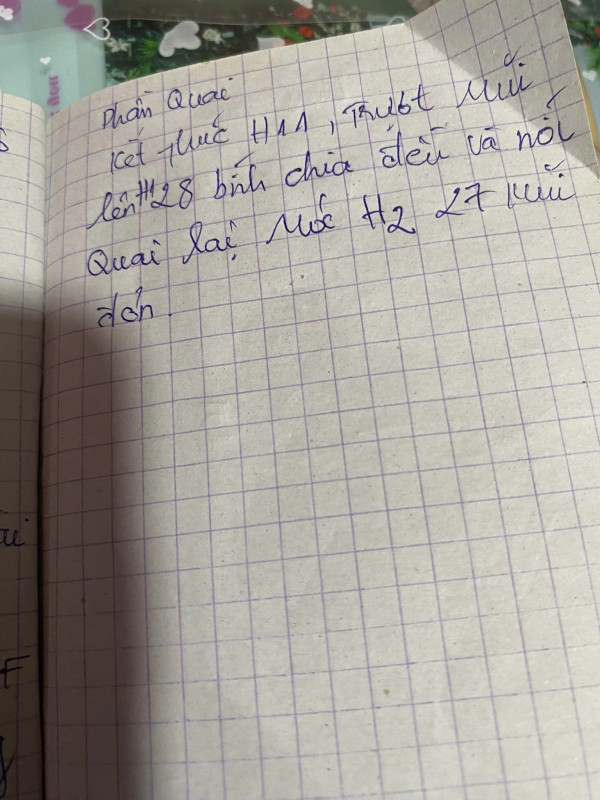 Phần Quai
Kết thúc H11, Trượt mũi
lên H28 bính chia đều và nối
Quai lại Móc H2 27 mũi
đơn.